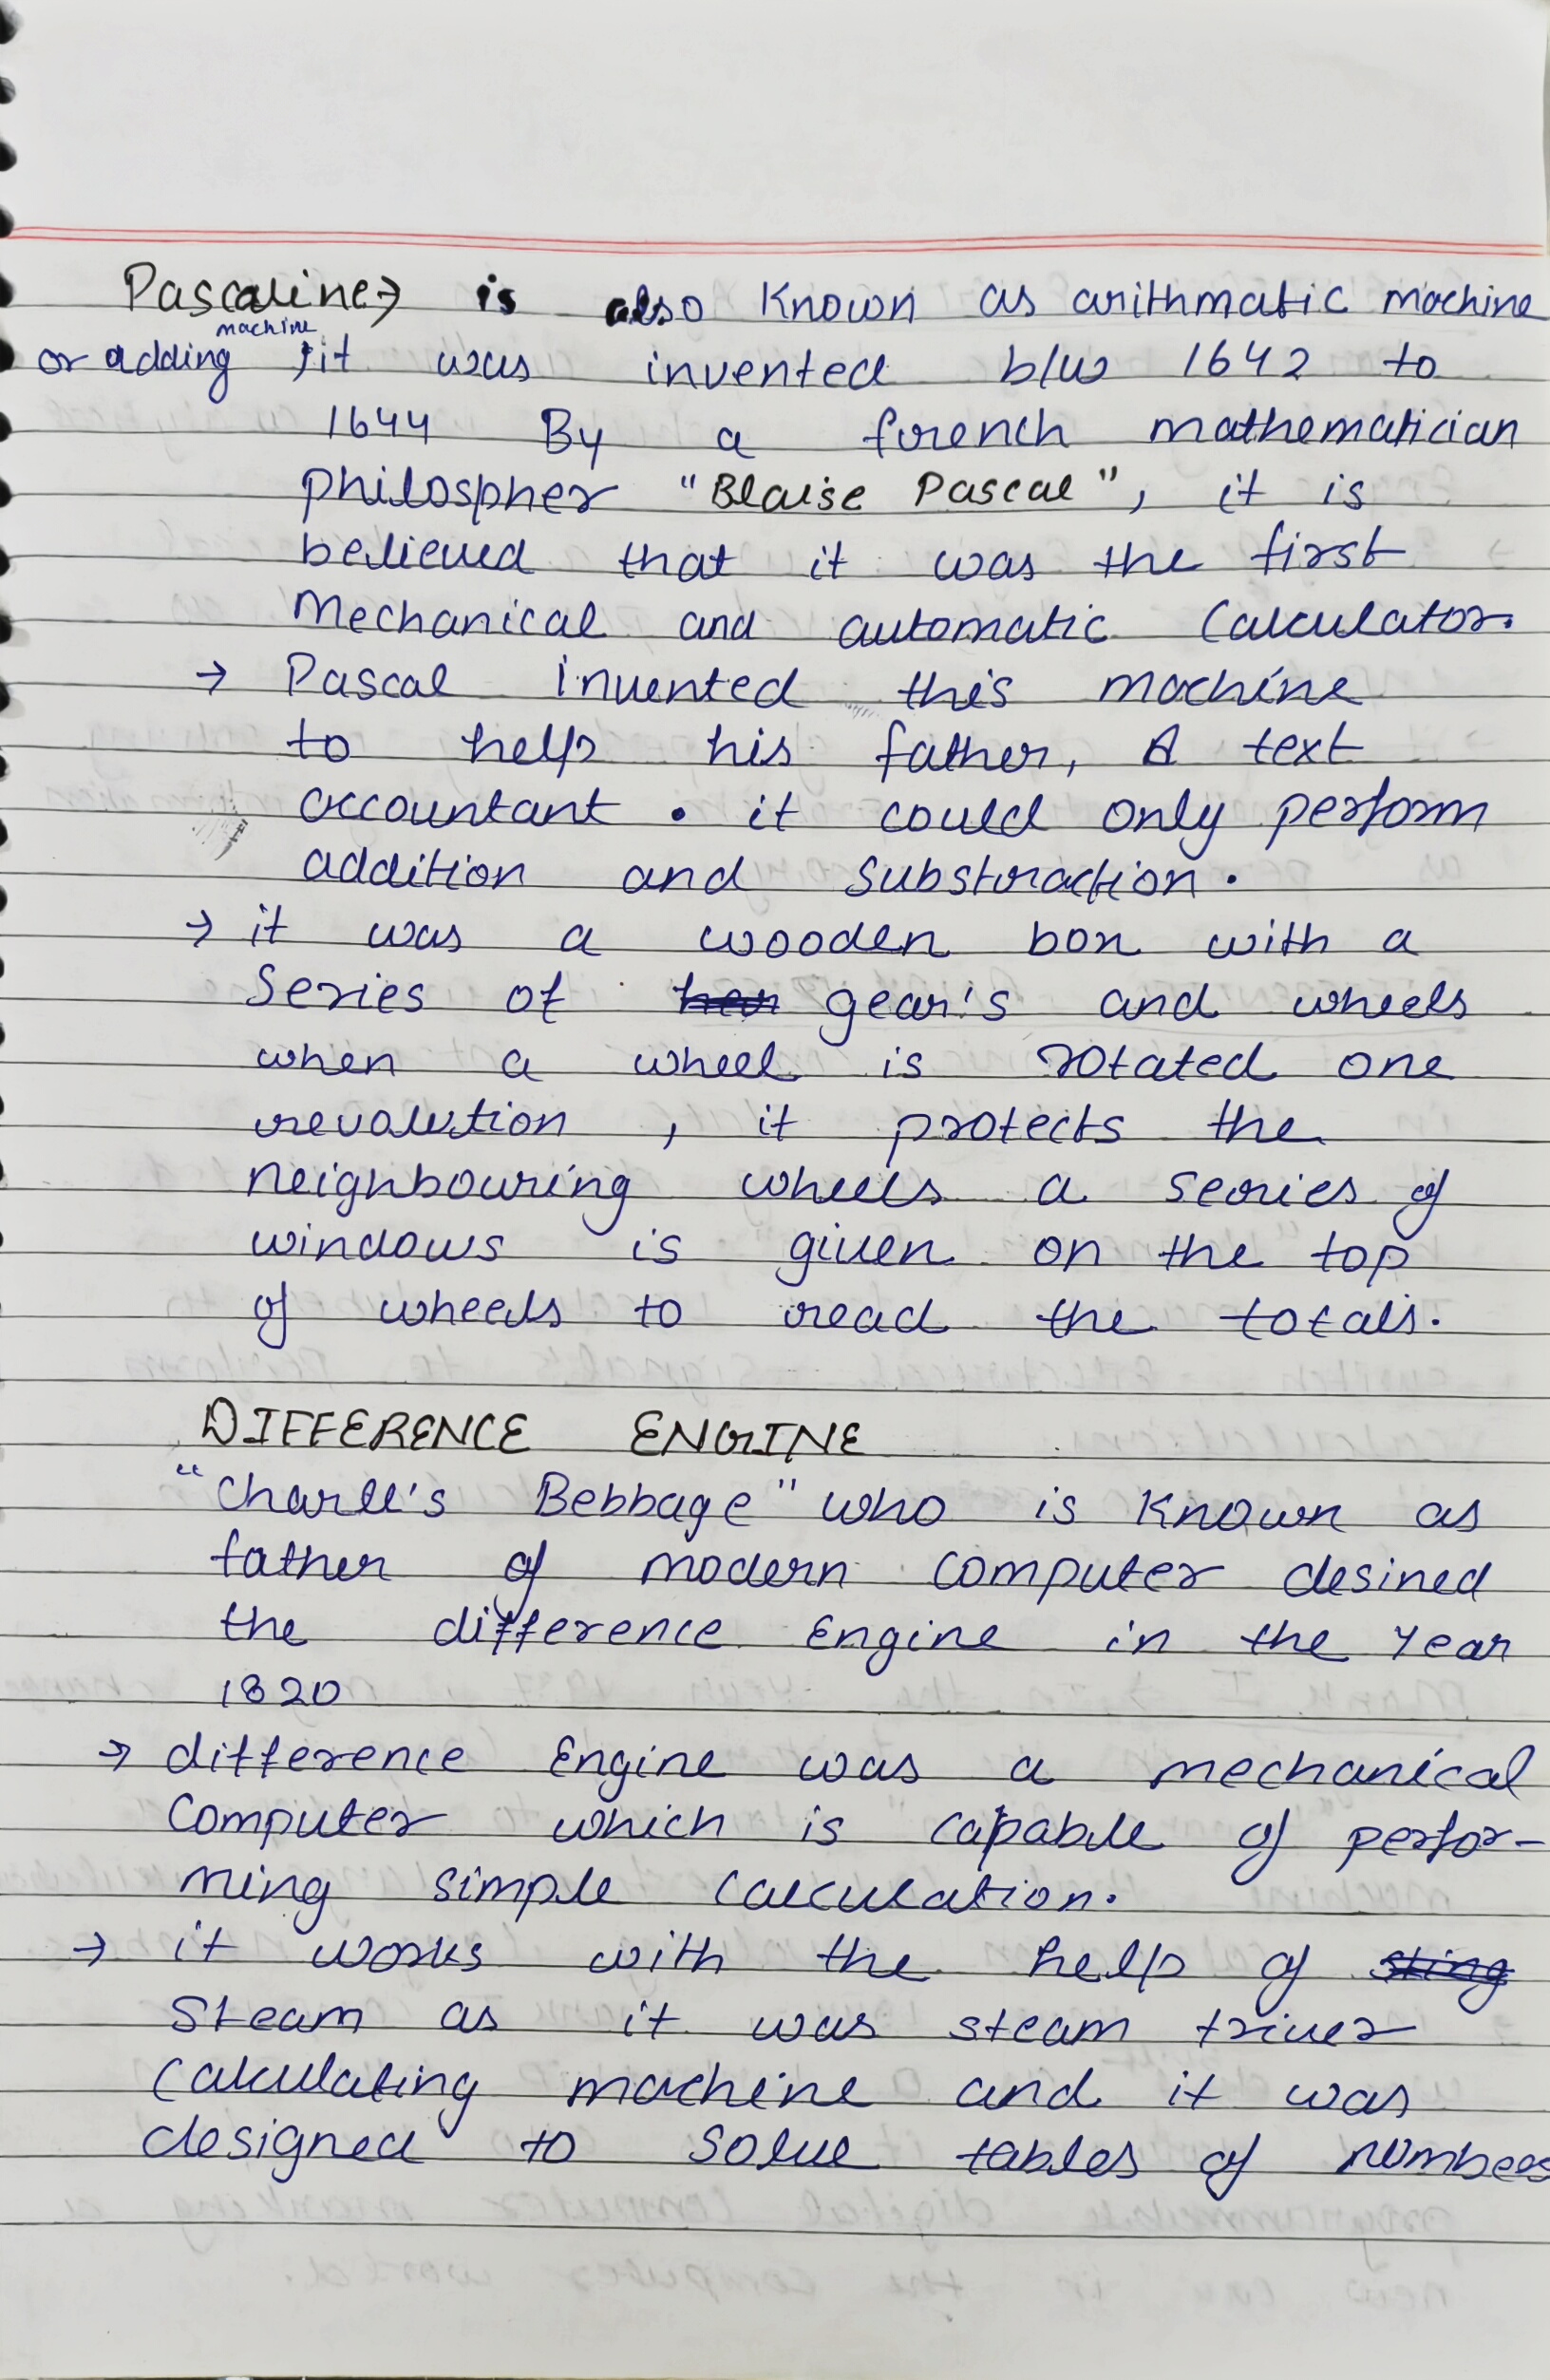 Pascaline → is also Known as arithmatic machine
machine
or adding , it was invented b/w 1642 to
1644 By a french mathematician
philospher "Blaise Pascal", it is
believed that it was the first
Mechanical and automatic Calculator.
→ Pascal invented this machine
to help his father, A text
accountant . it could only perform
addition and Substraction.
→ it was a wooden box with a
Series of gear's and wheels
when a wheel is rotated one
revolution , it protects the
neighbouring wheels a series of
windows is given on the top
of wheels to read the totals.
DIFFERENCE ENGINE
"Charle's Bebbage" who is Known as
father of modern Computer desined
the difference Engine in the Year
1820
→ difference Engine was a mechanical
Computer which is capable of perfor-
ming simple Calculation.
→ it works with the help of
Steam as it was steam triver
Calculating machine and it was
designed to Solve tables of numbers